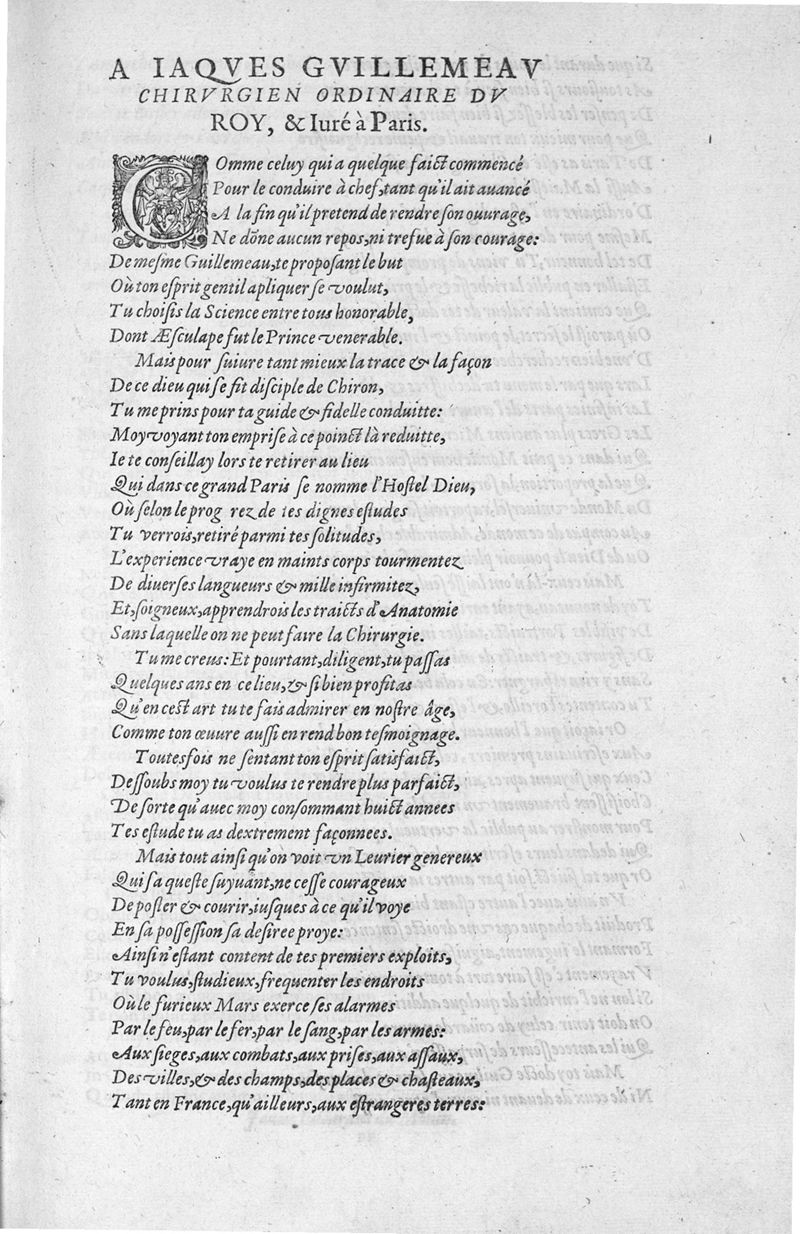 A IAQVES GVILLEMEAV
CHIRVRGIEN ORDINAIRE DV
ROY, & Iuré à Paris.
COmme celuy qui a quelque faict commencé
Pour le conduire à chef, tant qu'il ait auancé
A la fin qu'il pretend de rendre son ouurage,
Ne dõne aucun repos, ni trefue à son courage:
De mesme Guillemeau, te proposant le but
Où ton esprit gentil apliquer se voulut,
Tu choisis la Science entre tous honorable,
Dont Æsculape fut le Prince venerable.
Mais pour suiure tant mieux la trace & la façon
De ce dieu qui se fit disciple de Chiron,
Tu me prins pour ta guide & fidelle conduitte:
Moy voyant ton emprise à ce poinct là reduitte,
Ie te conseillay lors te retirer au lieu
Qui dans ce grand Paris se nomme l'Hostel Dieu,
Où selon le prog rez de tes dignes estudes
Tu verrois, retiré parmi tes solitudes,
L'experience vraye en maints corps tourmentez
De diuerses langueurs & mille infirmitez,
Et, soigneux, apprendrois les traicts d'Anatomie
Sans laquelle on ne peut faire la Chirurgie.
Tu me creus: Et pourtant, diligent, tu passas
Quelques ans en ce lieu, & si bien profitas
Qu'en cest art tu te fais admirer en nostre âge,
Comme ton œuure aussi en rend bon tesmoignage.
Toutesfois ne sentant ton esprit satisfaict,
Dessoubs moy tu voulus te rendre plus parfaict,
De sorte qu'auec moy consommant huict annees
Tes estude tu as dextrement façonnees.
Mais tout ainsi qu'on voit vn Leurier genereux
Qui sa queste suyuant, ne cesse courageux
De poster & courir, iusques à ce qu'il voye
En sa possession sa desiree proye:
Ainsi n'estant content de tes premiers exploits,
Tu voulus, studieux, frequenter les endroits
Où le furieux Mars exerce ses alarmes
Par le feu, par le fer, par le sang, par les armes:
Aux sieges, aux combats, aux prises, aux assaux,
Des villes, & des champs, des places & chasteaux,
Tant en France, qu'ailleurs, aux estrangeres terres: